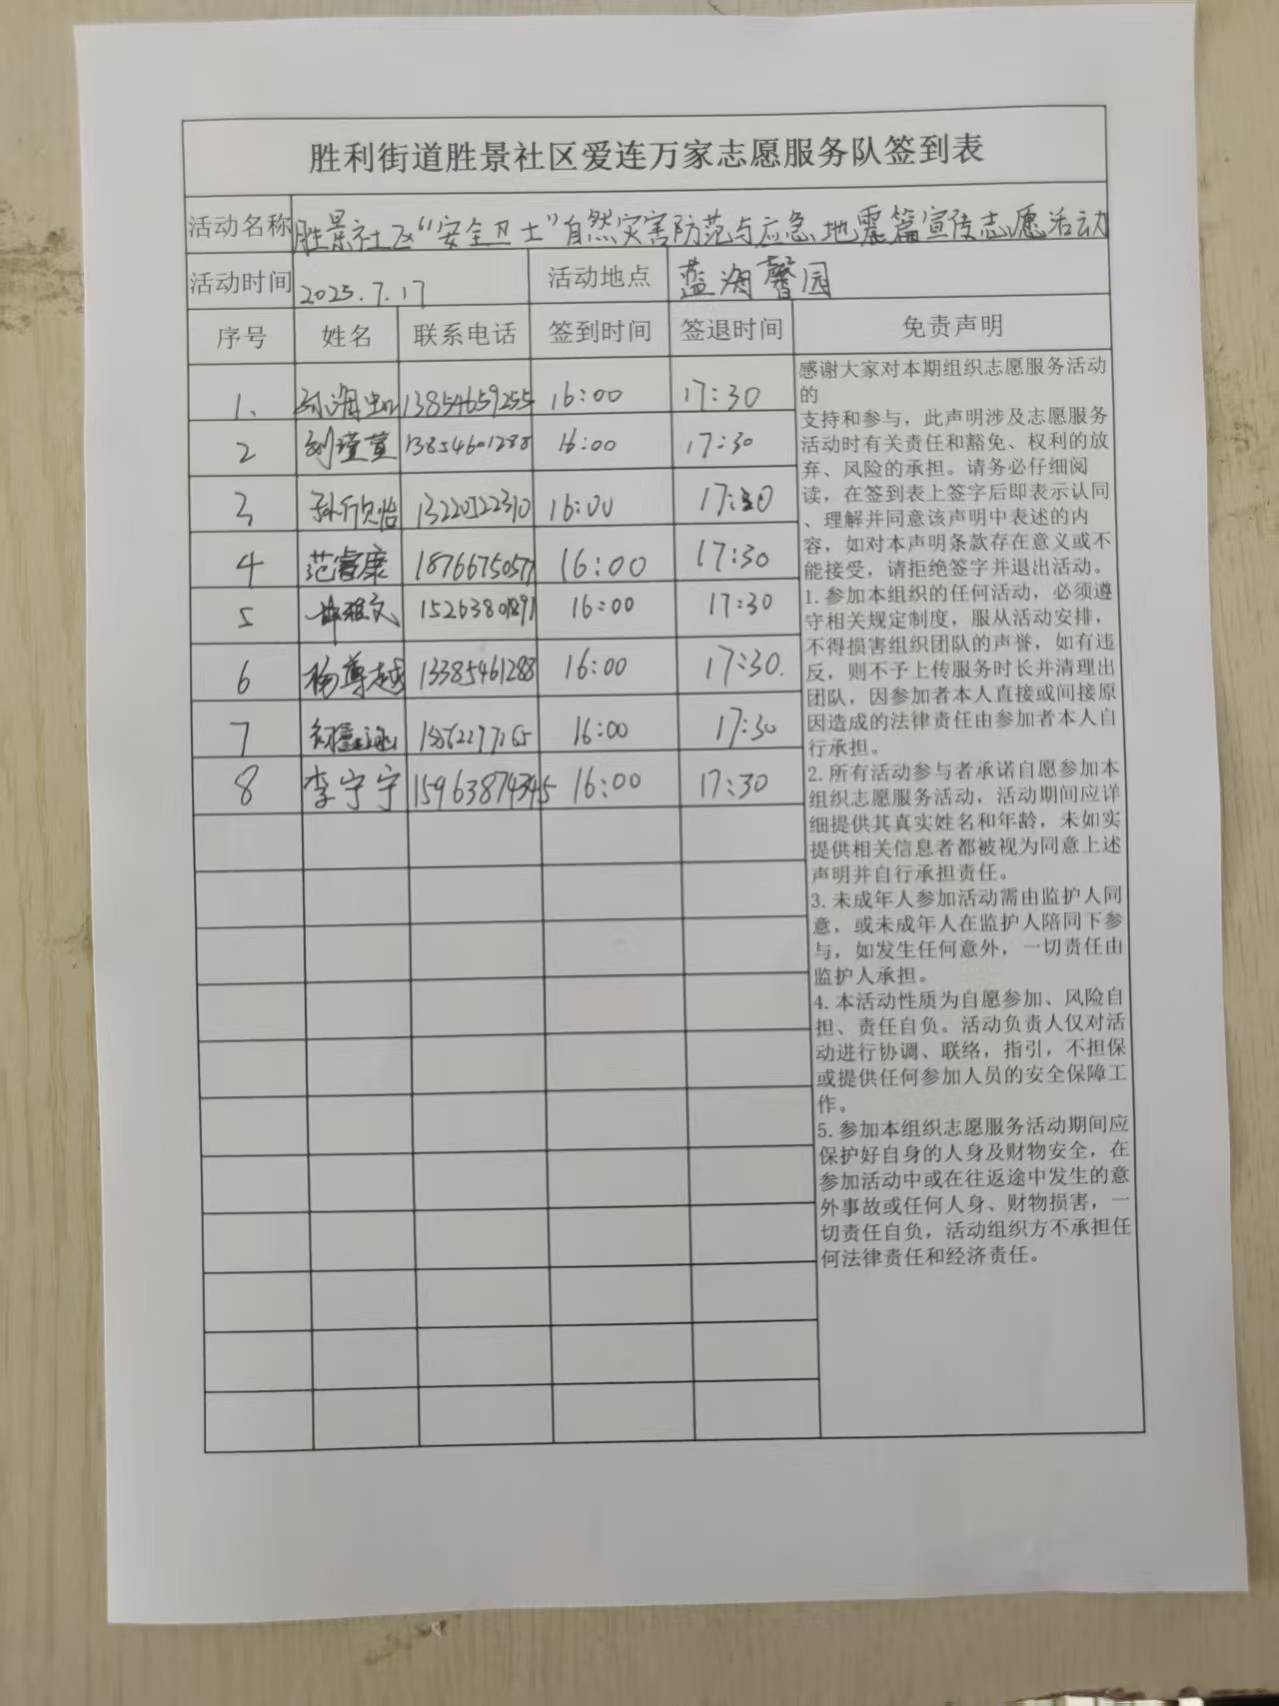 胜利街道胜景社区爱连万家志愿服务队签到表
活动名称 胜景社区“安全卫士”自然灾害防范与应急地震篇宣传志愿活动
活动时间 2025.7.17 活动地点 蓝海馨园
序号 姓名 联系电话 签到时间 签退时间 免责声明
1、 13854659255 16:00 17:30
2 刘瑾萱 13854601288 16:00 17:30
3 孙欣怡 16:00 17:30
4 范睿康 18766750577 16:00 17:30
5 16:00 17:30
6 杨尊越 13385461288 16:00 17:30.
7 16:00 17:30
8 李宁宁 15963874345 16:00 17:30
感谢大家对本期组织志愿服务活动
的
支持和参与，此声明涉及志愿服务
活动时有关责任和豁免、权利的放
弃、风险的承担。请务必仔细阅
读，在签到表上签字后即表示认同
、理解并同意该声明中表述的内
容，如对本声明条款存在意义或不
能接受，请拒绝签字并退出活动。
1.参加本组织的任何活动，必须遵
守相关规定制度，服从活动安排，
不得损害组织团队的声誉，如有违
反，则不予上传服务时长并清理出
团队，因参加者本人直接或间接原
因造成的法律责任由参加者本人自
行承担。
2.所有活动参与者承诺自愿参加本
组织志愿服务活动，活动期间应详
细提供其真实姓名和年龄，未如实
提供相关信息者都被视为同意上述
声明并自行承担责任。
3.未成年人参加活动需由监护人同
意，或未成年人在监护人陪同下参
与，如发生任何意外，一切责任由
监护人承担。
4.本活动性质为自愿参加、风险自
担、责任自负。活动负责人仅对活
动进行协调、联络，指引，不担保
或提供任何参加人员的安全保障工
作。
5.参加本组织志愿服务活动期间应
保护好自身的人身及财物安全，在
参加活动中或在往返途中发生的意
外事故或任何人身、财物损害，一
切责任自负，活动组织方不承担任
何法律责任和经济责任。